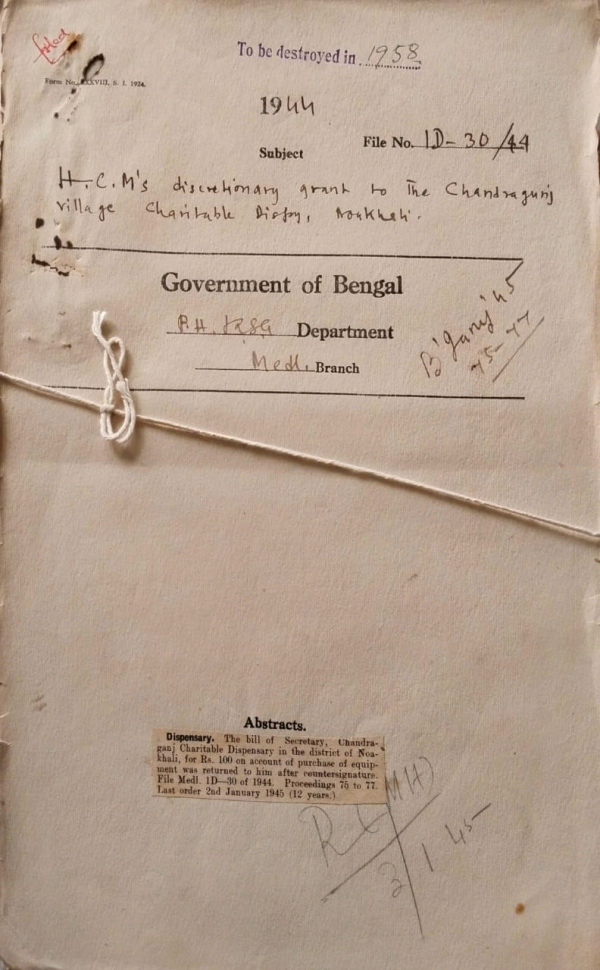 To be destroyed in 1958
Form No. XXXVIII, S. I. 1924.
1944
File No. 1D-30/44
Subject
H.C.M's discretionary grant to The Chandraganj
village Charitable Dispy, Noakhali.
Government of Bengal
P.H. & LSG Department
Medl. Branch
B'Jany '45
75-77
Abstracts.
Dispensary. The bill of Secretary, Chandra-
ganj Charitable Dispensary in the district of Noa-
khali, for Rs. 100 on account of purchase of equip-
ment was returned to him after countersignature.
File Medl. 1D—30 of 1944. Proceedings 75 to 77.
Last order 2nd January 1945 (12 years.)
(MH)
2/1/45